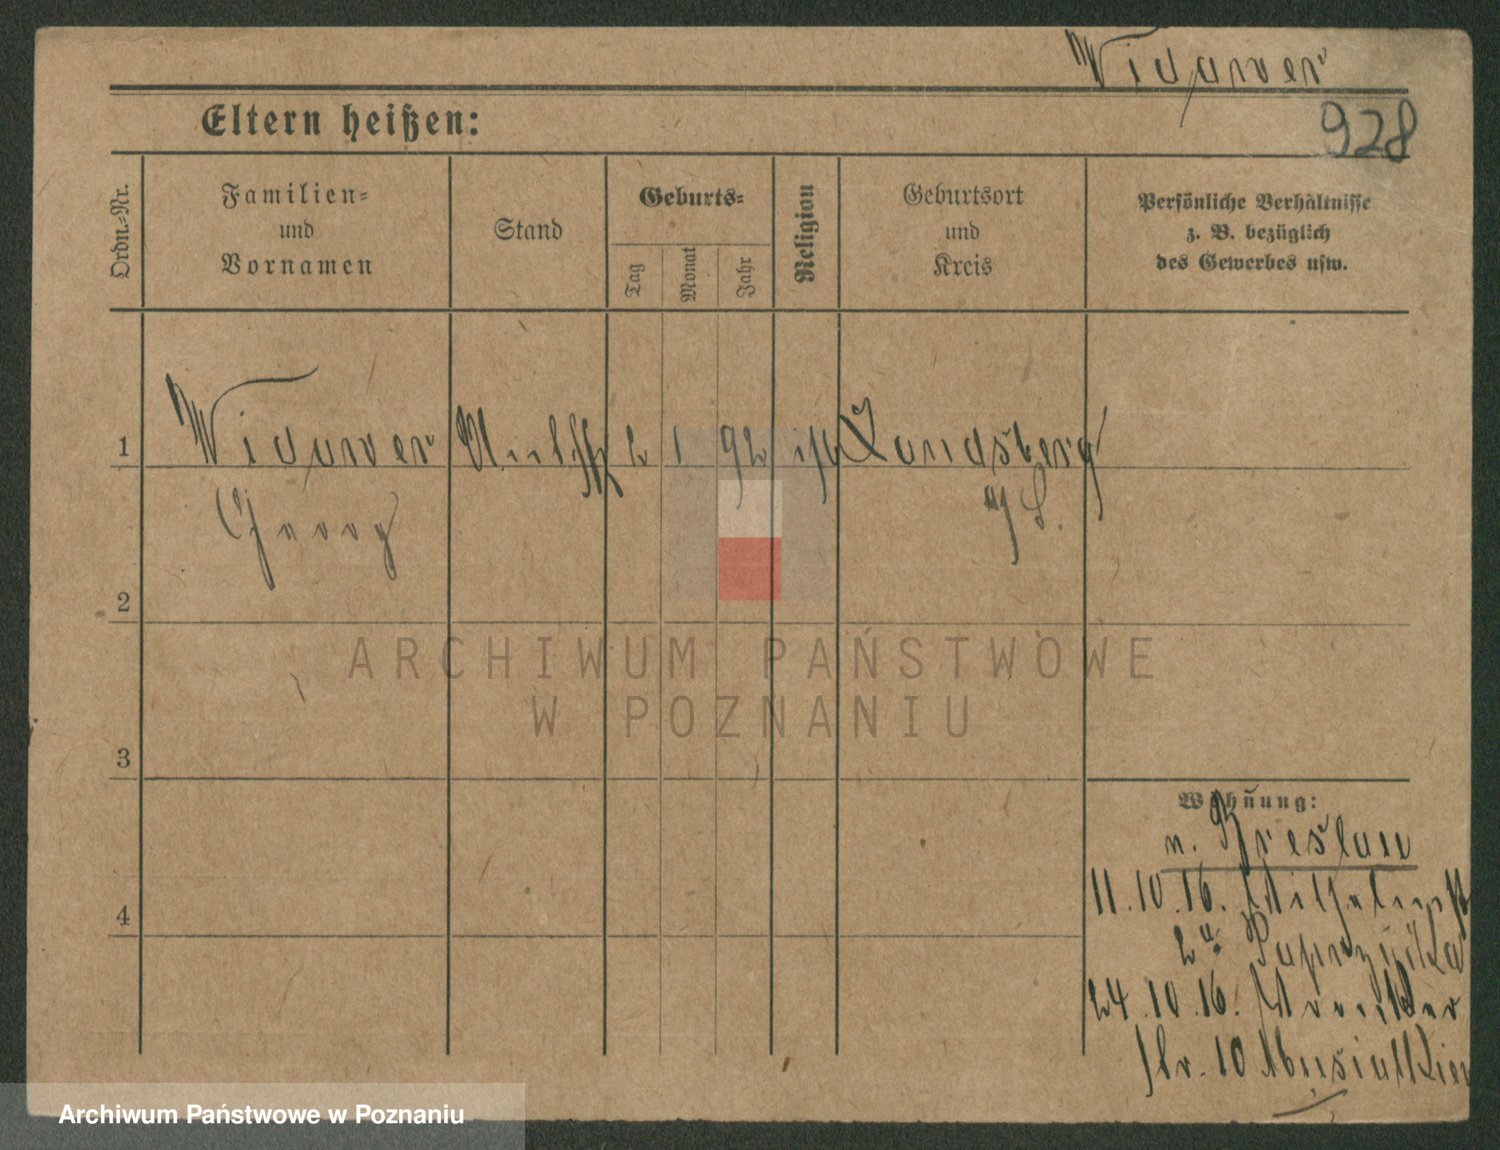 Widawer
928
Eltern heißen:
Ordn.-Nr.
Familien-
und
Vornamen
Stand
Geburts-
Tag
Monat
Jahr
Religion
Geburtsort
und
Kreis
Persönliche Verhältnisse
z. B. bezüglich
des Gewerbes usw.
1
Widawer
2 1 92
Landsberg
Georg
2
ARCHIWUM PAŃSTWOWE
W POZNANIU
3
Wohnung:
n. Breslau
4
11.10.16. Wilhelmst
2 Paprzycka
24.10.16. Wronker
str. 10 Musialkiew
Archiwum Państwowe w Poznaniu